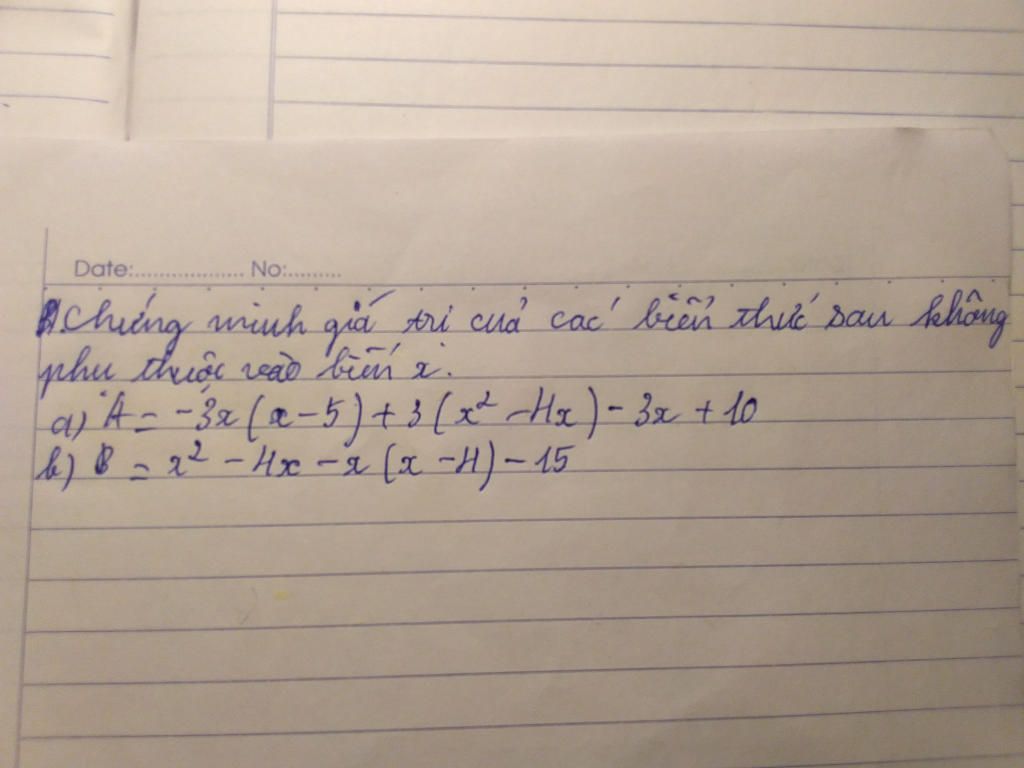 Date:.................. No:.........
1. Chứng minh giá trị của các biến thức sau không
phụ thuộc vào biến x.
a) A = -3x(x-5)+3(x² -4x)-3x+10
b) B = x² -4x-x(x-4)-15